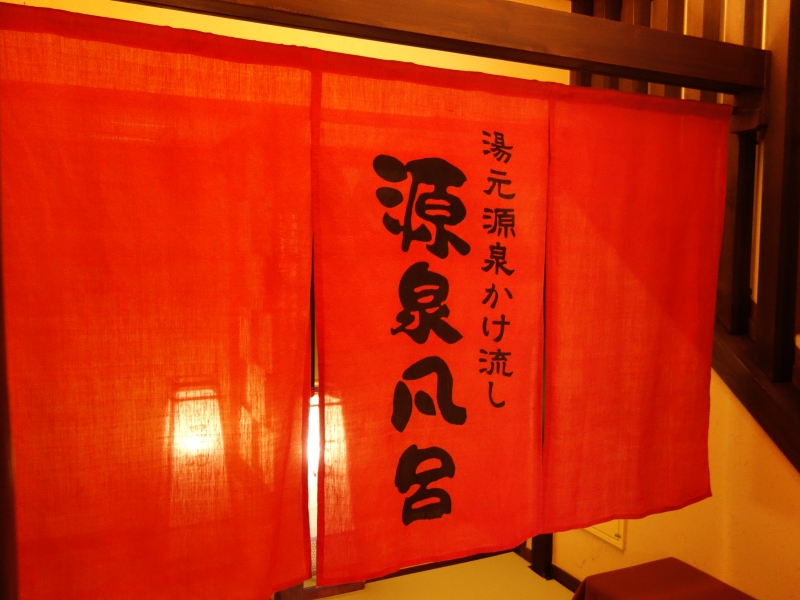 湯元源泉かけ流し
源泉風呂